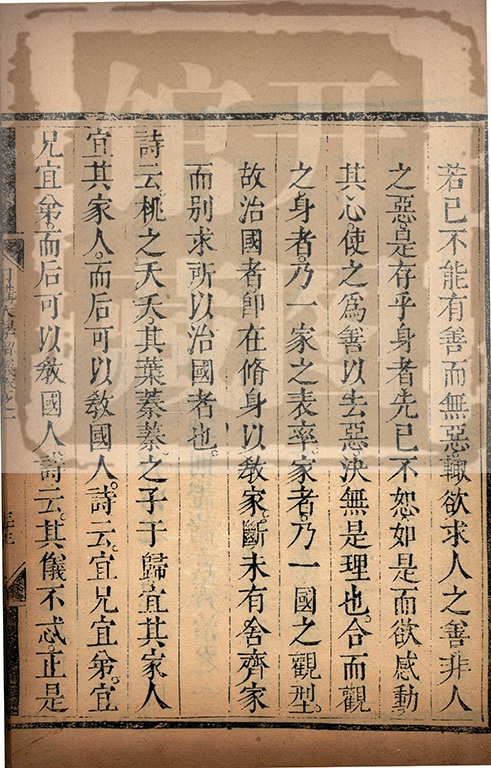 若己不能有善而無惡輙欲求人之善非人
之惡是存乎身者先已不恕如是而欲感動
其心使之爲善以去惡決無是理也合而觀
之身者乃一家之表率家者乃一國之觀型
故治國者卽在脩身以敎家斷未有舍齊家
而別求所以治國者也
詩云桃之夭夭其葉蓁蓁之子于歸宜其家人
宜其家人而后可以敎國人詩云宜兄宜弟宜
兄宜弟而后可以敎國人詩云其儀不忒正是